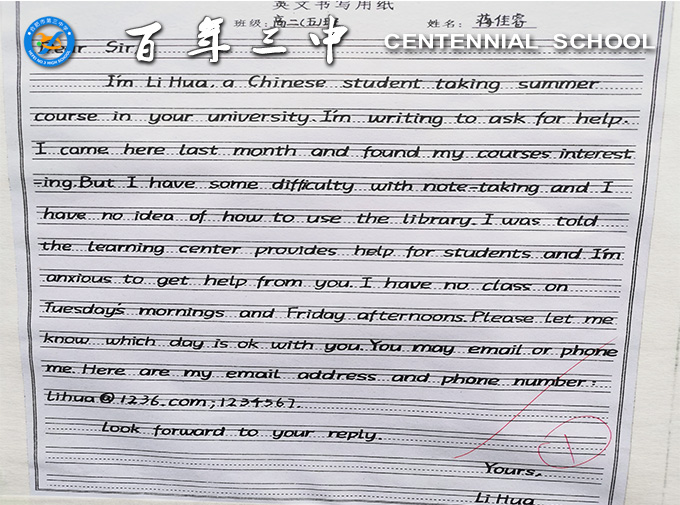 英文书写用纸
班级: 高二(五)班 姓名: 蒋佳睿
百年三中 CENTENNIAL SCHOOL
Dear Sir
I'm Li Hua, a Chinese student taking summer
course in your university. I'm writing to ask for help.
I came here last month and found my courses interest
-ing. But I have some difficulty with note-taking and I
have no idea of how to use the library. I was told
the learning center provides help for students and I'm
anxious to get help from you. I have no class on
Tuesday's mornings and Friday afternoons. Please let me
know which day is ok with you. You may email or phone
me. Here are my email address and phone number:
lihua@1236.com; 1234567.
Look forward to your reply.
1
Yours,
Li Hua